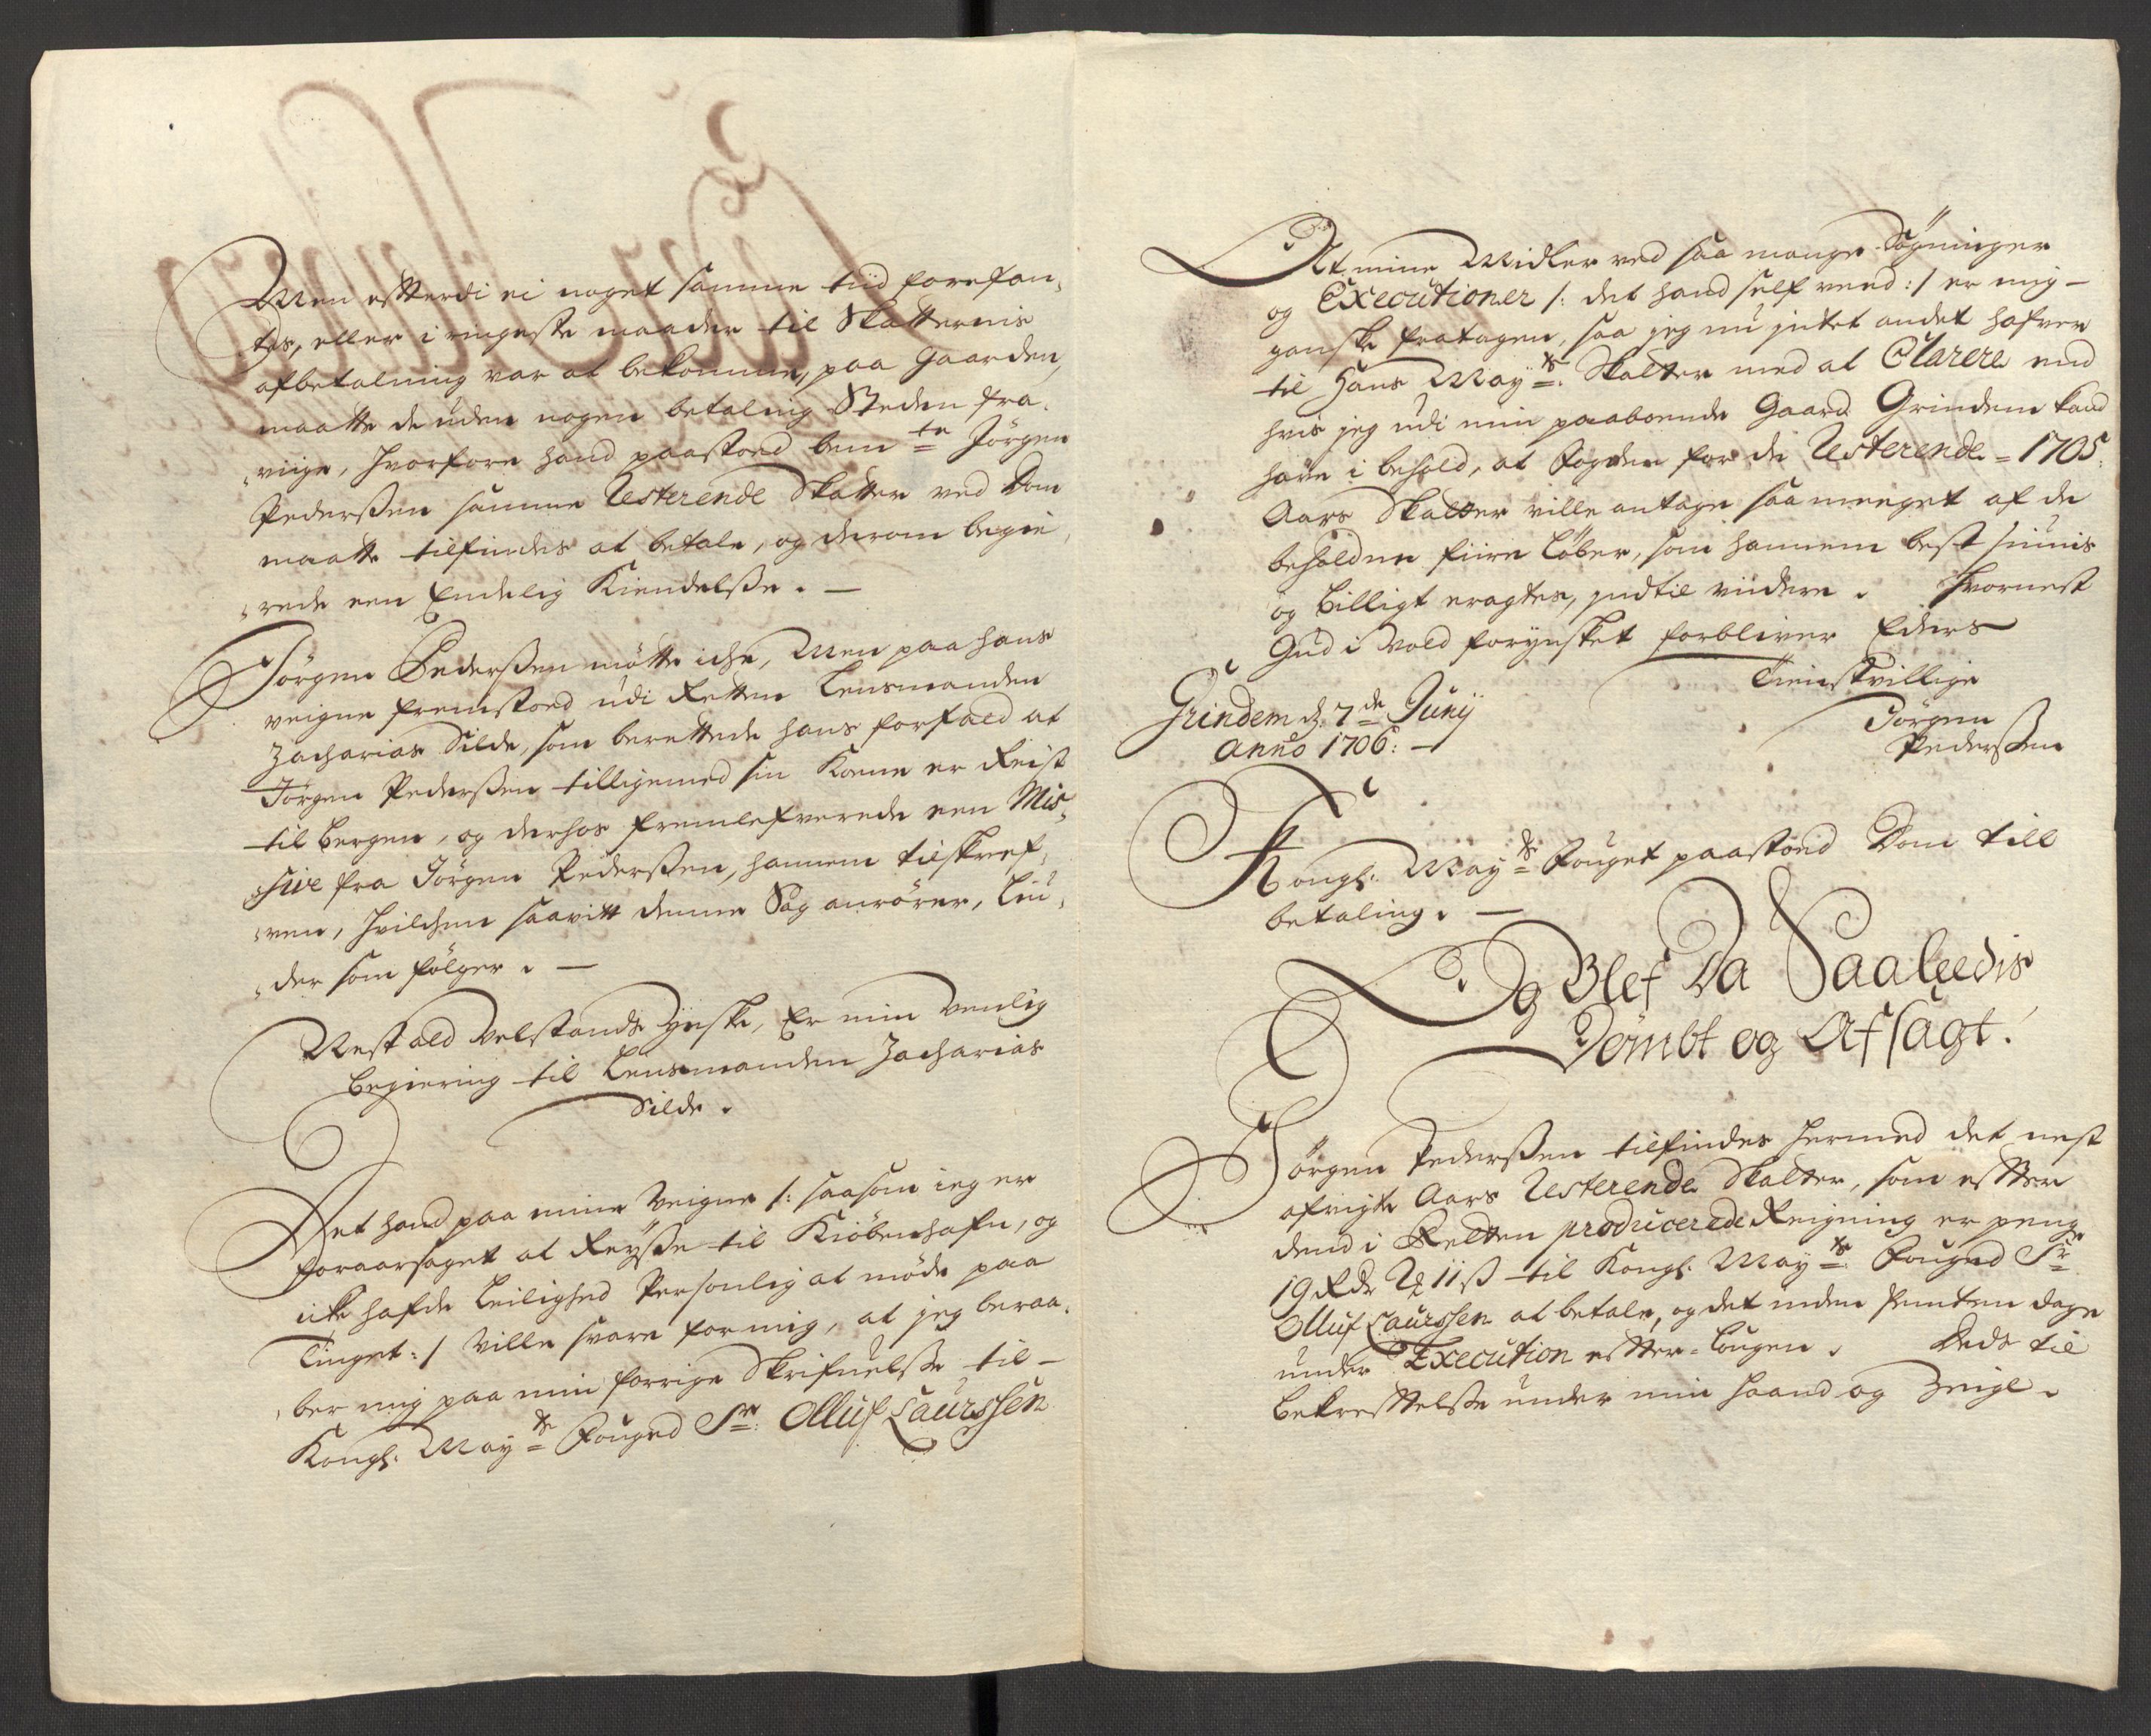 Men efftterdi ei noget samme tiid forefan,
tes, eller i ringeste maader til Skatternis
afbetalning var at bekomme, paa Gaarden,
maatte de uden nogen betaling Steden fra,
,viige, hvorfore hand paastoed bem.te Jörgen
Pederssen samme Resterende Skatter ved Dom
maatte tilfindes at betale, og derom begie,
,rede een Endelig Kiendelsse. —
Jörgen Pederssen mötte iche, Men paa hans
veigne fremstoed udi Retten Lensmanden
Zacharias Silde, som berettede hans forfald at
Jörgen Pederssen tilligemed sin Kone er Reist
til bergen, og derhos fremlefverede een Mis,
,sive fra Jörgen Pederssen, hannem tilskref,
,ven, hvilchen saavitt denne Sag anrörer, Liu,
,der som fölger. —
Nest ald velstands ynske, Er min venlig
begiering til Lensmanden Zacharias
Silde.
Det hand paa mine veigne /: saasom ieg er
foraarsaget at Reysse til Kiöbenhafn, og
icke hafde Leilighed Personlig at möde paa
Tinget :/ ville svare for mig, at jeg beraa,
,ber mig paa min forrige Skrifvelsse til —
Kongl: May.ts Fouged Sr: Olluf Laurssen
At mine Midler ved saa mange Sögninger
og Executioner /: det hand self veed :/ er mig —
ganske fratagen, saa jeg nu jntet andet hafver
til Hans May.ts Skatter med at Clarere end
hvis jeg udi min paaboende Gaard Grindem kand
have i behold, at Fogden for de Resterende = 1705
Aars Skatter ville antage saa meeget af de
beholdne fiire Löber, som hannem best siunis
og billigt eragtes, jndtil viidere. Hvornest
Gud i vold forynsket forbliver Eders
Tienstvillige
Grindem d. 7de Junij
Anno 1706: —
Jörgen
Pederssen
Kongl: May.ts Fouget paastoed Dom till
betaling. —
Og Blef Da Saaledis
Dömbt og Afsagt.
Jörgen Pederssen tilfindes hermed det nest
afvigte Aars Resterende Skatter, som efftter
dend i Retten producerede Reigning er penge
19 Rdr 2 11 ß til Kongl: May.ts Fouged Sr
Olluf Laurssen at betale, og det inden femten dage
under Execution efftter Lougen. Dets til
bekrefftelsse under min haand og Zeigl.